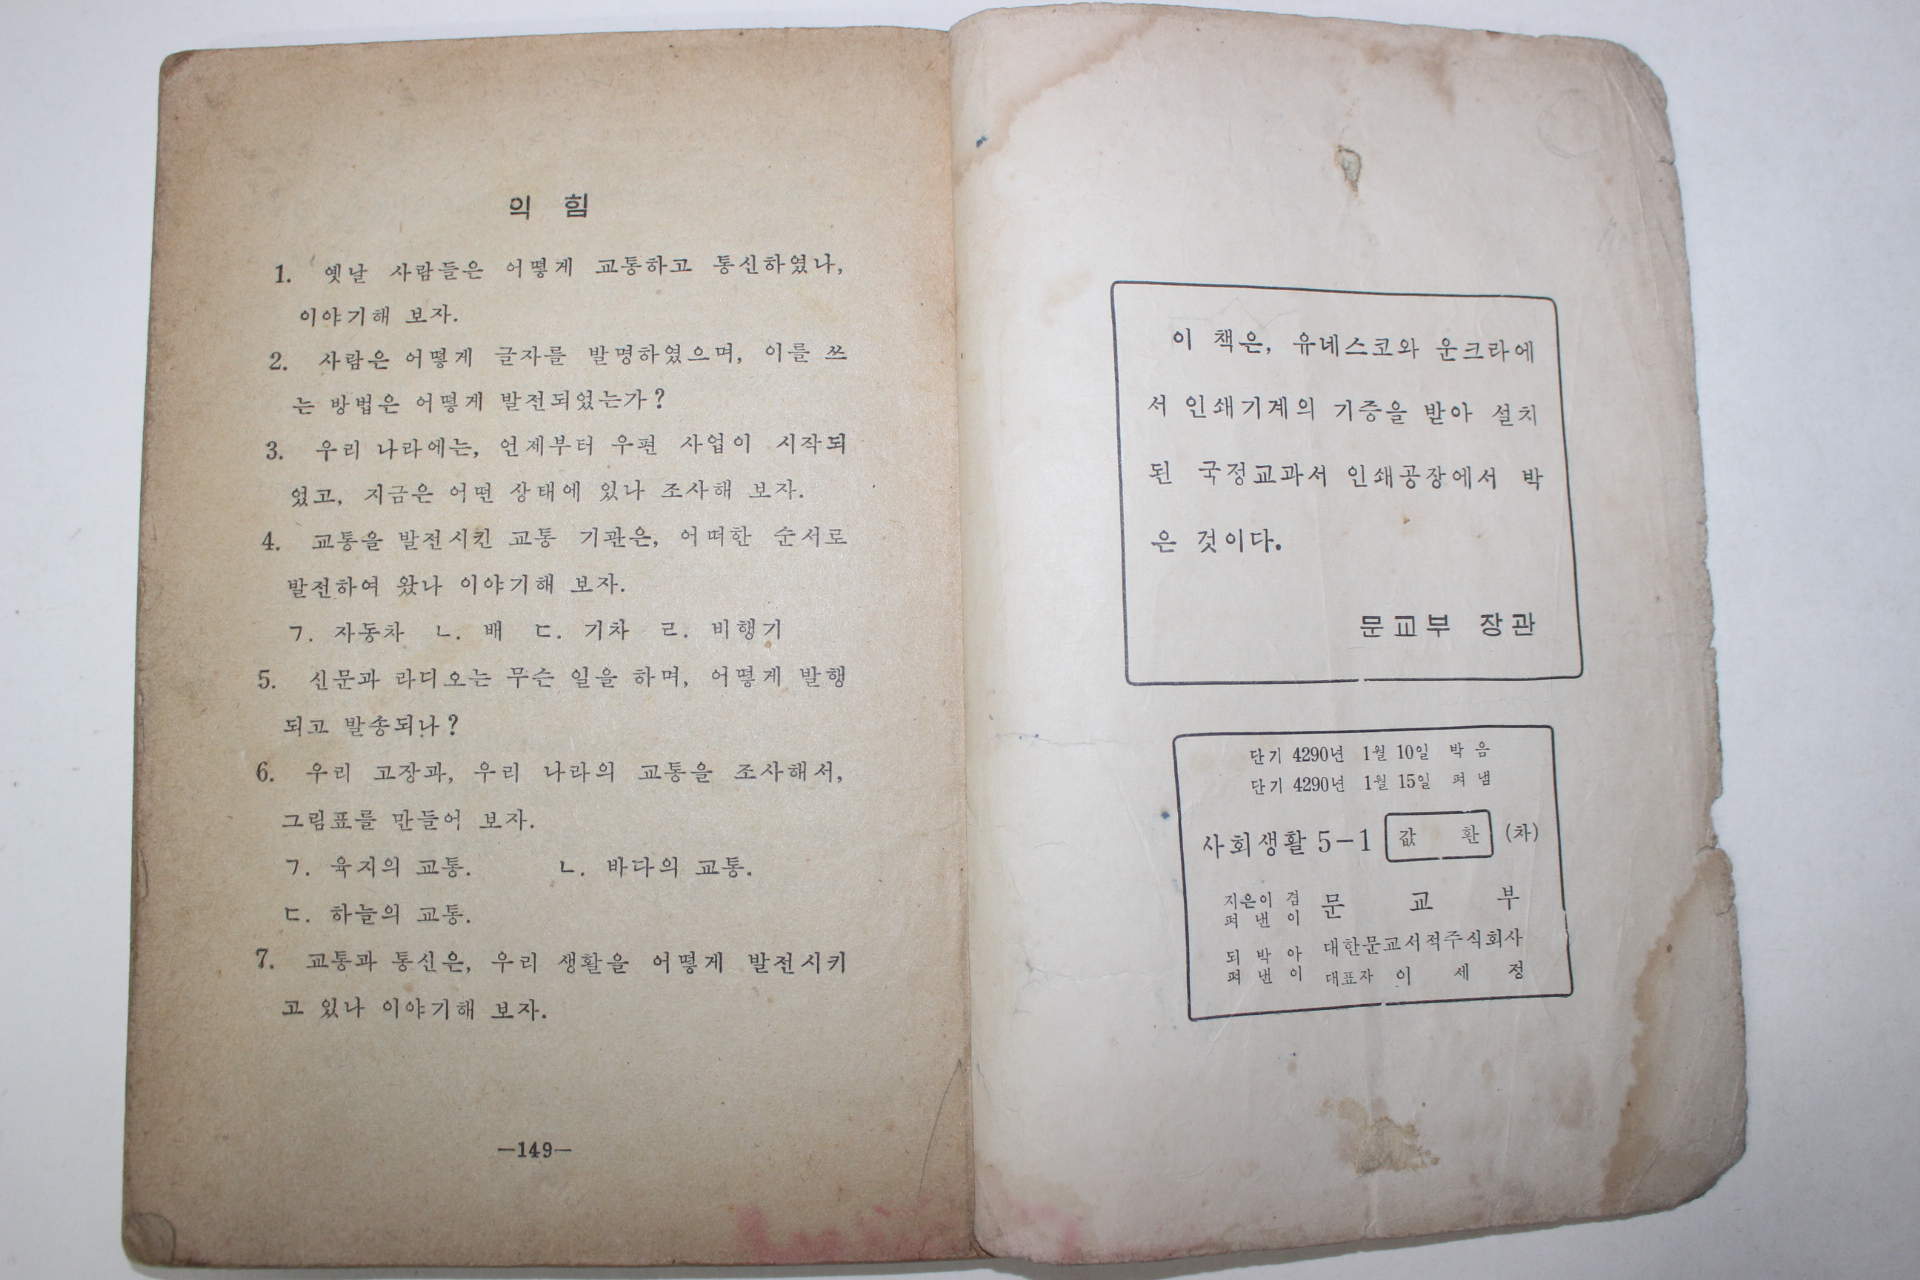 익 힘
1. 옛날 사람들은 어떻게 교통하고 통신하였나,
이야기해 보자.
2. 사람은 어떻게 글자를 발명하였으며, 이를 쓰
는 방법은 어떻게 발전되었는가?
3. 우리 나라에는, 언제부터 우편 사업이 시작되
었고, 지금은 어떤 상태에 있나 조사해 보자.
4. 교통을 발전시킨 교통 기관은, 어떠한 순서로
발전하여 왔나 이야기해 보자.
ㄱ. 자동차 ㄴ. 배 ㄷ. 기차 ㄹ. 비행기
5. 신문과 라디오는 무슨 일을 하며, 어떻게 발행
되고 발송되나?
6. 우리 고장과, 우리 나라의 교통을 조사해서,
그림표를 만들어 보자.
ㄱ. 육지의 교통. ㄴ. 바다의 교통.
ㄷ. 하늘의 교통.
7. 교통과 통신은, 우리 생활을 어떻게 발전시키
고 있나 이야기해 보자.
—149—
이 책은, 유네스코와 운크라에
서 인쇄기계의 기증을 받아 설치
된 국정교과서 인쇄공장에서 박
은 것이다.
문교부 장관
단기 4290년 1월 10일 박음
단기 4290년 1월 15일 펴냄
사회생활 5-1 값 환 (차)
지은이 겸
펴 낸 이 문 교 부
되 박 아
펴 낸 이 대한문교서적주식회사
대표자 이 세 정